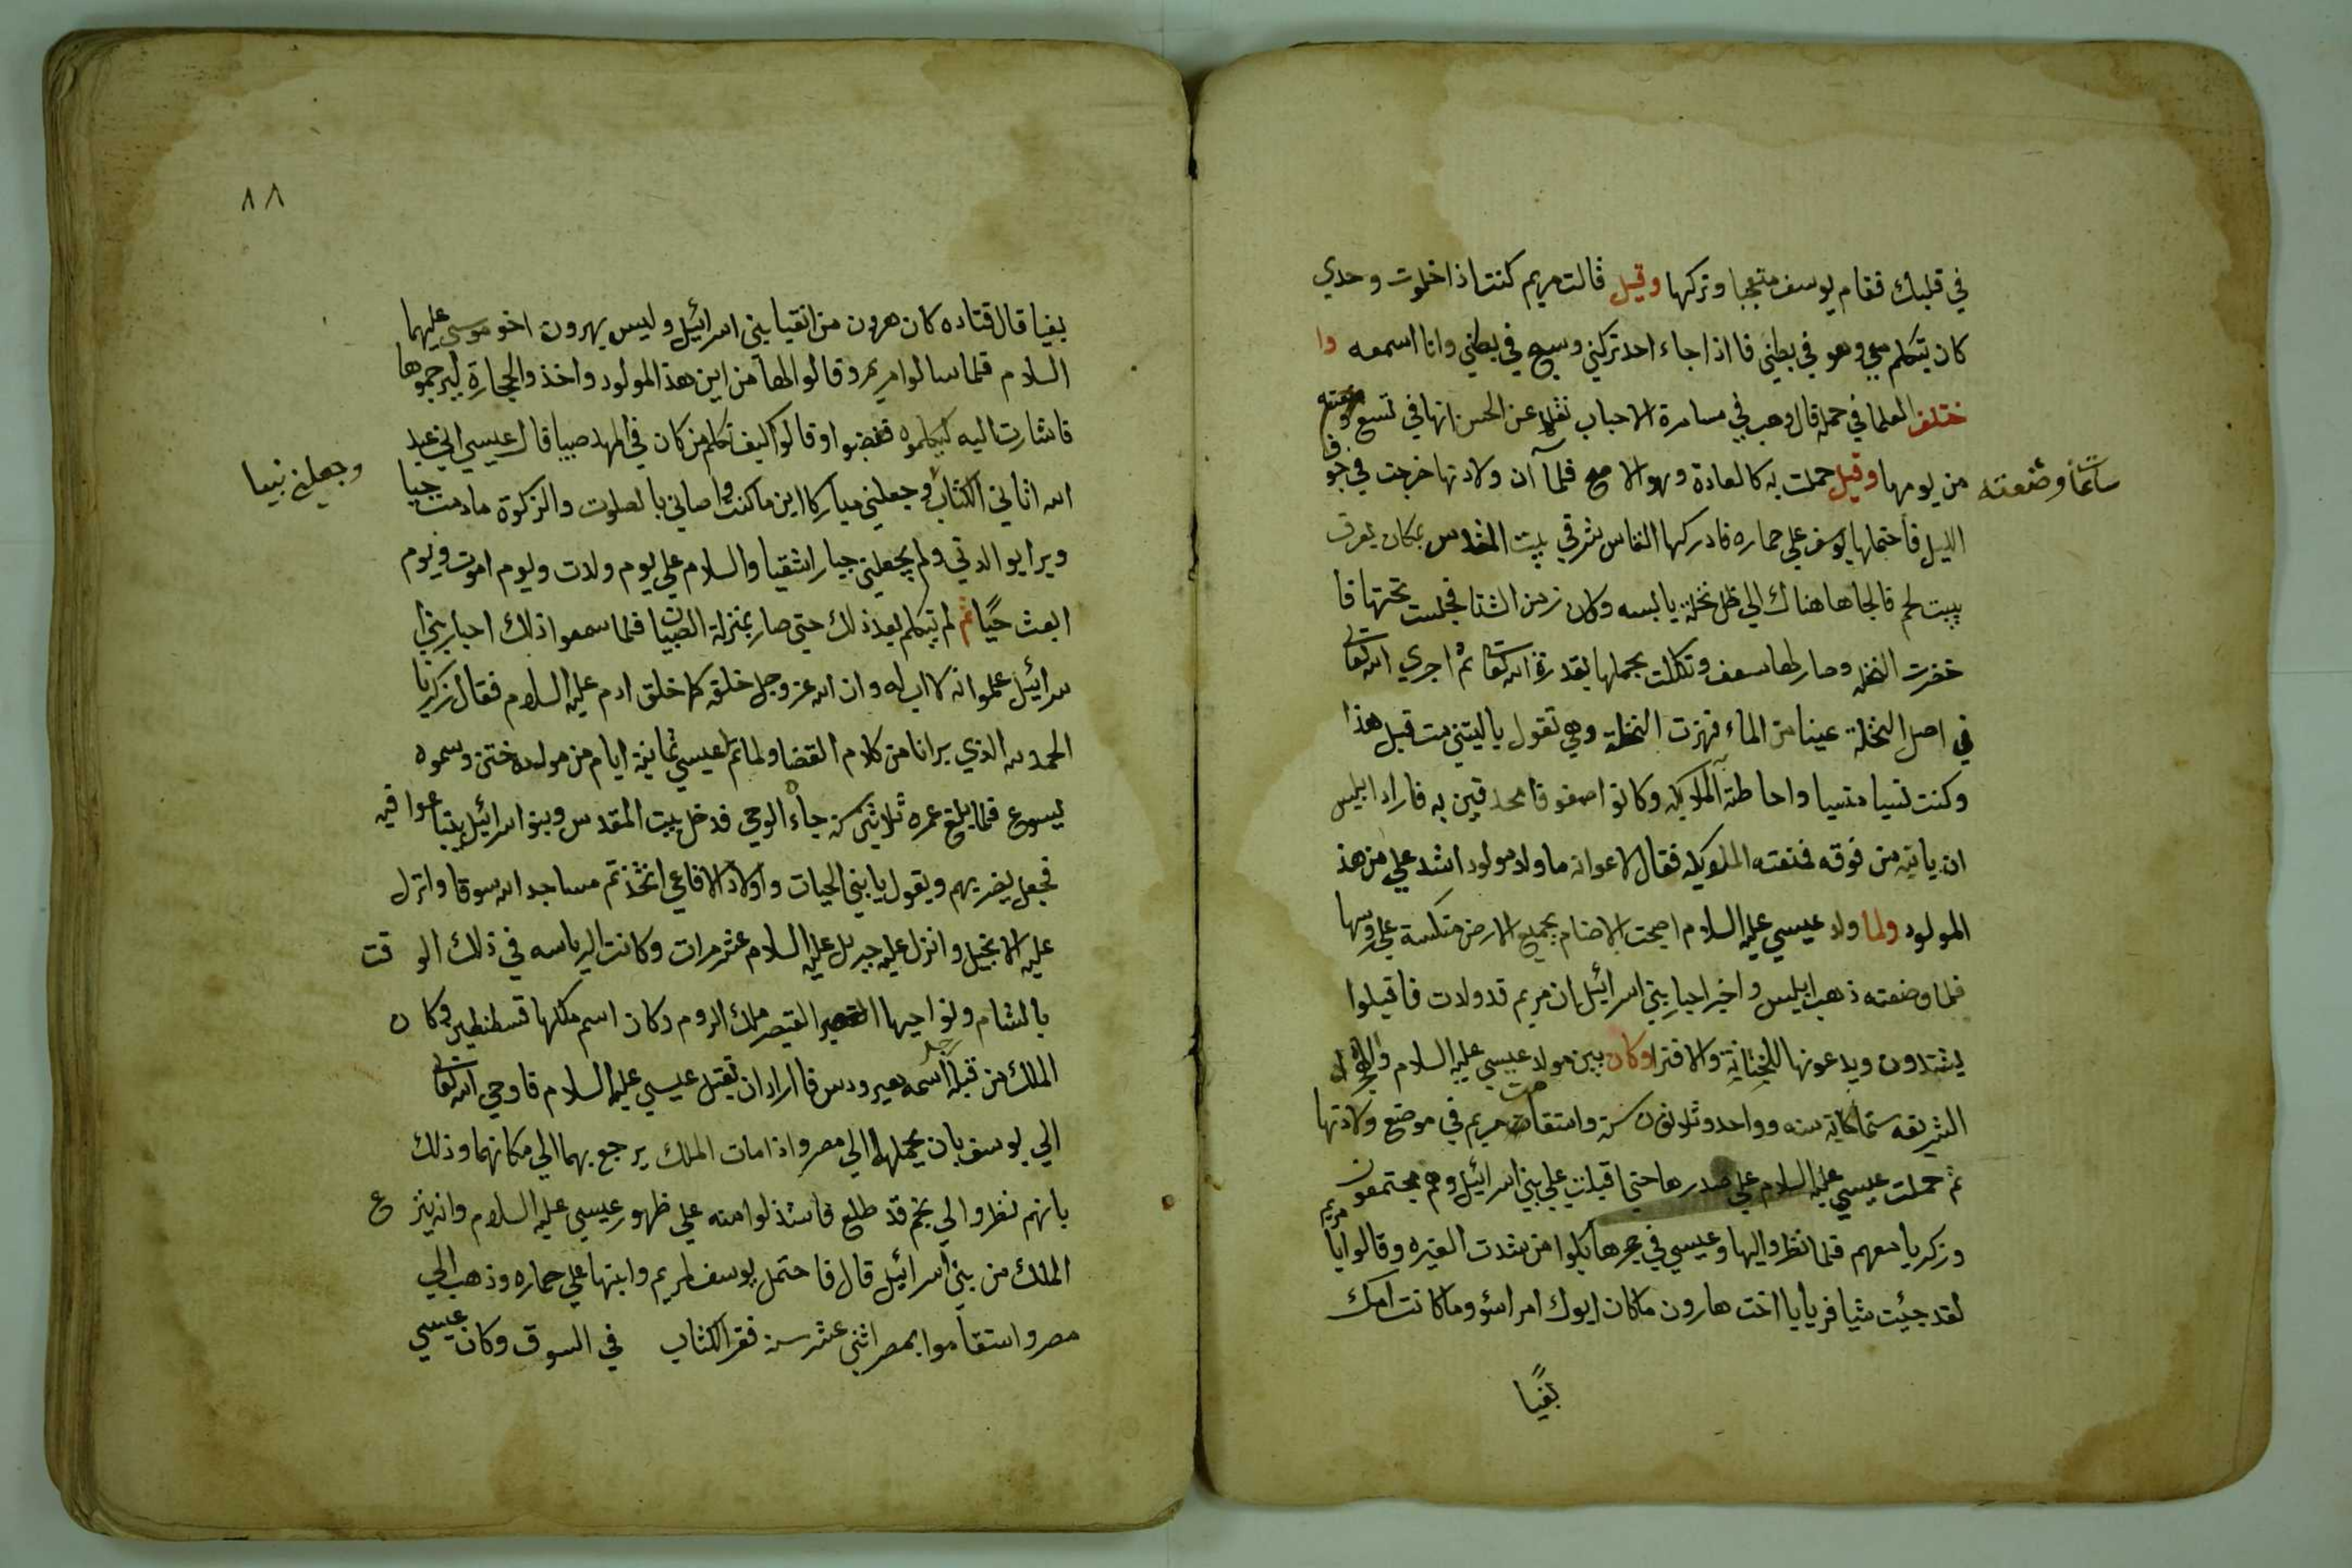 في قلبك فقام يوسف متعجبا وتركها وقيل قالت مريم كنت اذا خلوت وحدي
كان يتكلم معي وهو في بطني فا اذا جاء احد تركني وسبح في بطني وانا اسمعه وا
ختلف العلما في حمله قال وهب في مسامرة الاحباب نقلا عن الحسن انها في تسع
ساعات وضعته
من يومها وقيل حملت به كالعادة وهو الاصح فلما آن ولادتها خرجت في جوف
الليل فاحتملها يوسف علي حماره فادركها النفاس شرقي بيت المقدس بمكان يعرف
ببيت لحم فالجاها هناك الي ظل نخلة يابسه وكان زمن الشتا فجلست تحتها فا
خضرت النخله وصار لها سعف وتكللت بحملها بقدرة الله تعالي ثم اجري الله تعالي
في اصل النخلة عينا من الماء فهزت النخلة وهي تقول ياليتني مت قبل هذا
وكنت نسيا منسيا واحاطته الملايكه وكانوا صفوفا محدقين به فاراد ابليس
ان ياتيه من فوقه فمنعته الملايكه فقال لاعوانه ما ولد مولود اشد علي من هذ
المولود ولما ولد عيسي عليه السلام اصبحت الاصنام بجميع الارض منكسة علي روسها
فلما وضعته ذهب ابليس واخبر احبار بني اسرائيل ان مريم قد ولدت فاقبلوا
يشتدون ويدعونها للخيانة والافترا وكان بين مولد عيسي عليه السلام والهجرة
الشريفه ستماية سنه وواحد وثلاثون سنة واستقامت مريم في موضع ولادتها
ثم حملت عيسي عليه السلام علي صدرها حتي اقبلت علي بني اسرائيل وهم مجتمعون
وزكريا معهم فلما نظروا اليها وعيسي في حجرها بكوا من شدت الغيره وقالوا يا مريم
لقد جئت شيا فريا يا اخت هارون ماكان ابوك امراسؤ وماكانت امك
بغيًا
٨٨
بغيا قال قتاده كان هرون من اتقيا بني اسرائيل وليس بهرون اخو موسي عليهما
السلام فلما سالوا مريم وقالوا لها من اين هذ المولود واخذ والحجارة ليرجموها
فاشارت اليه ليكلموه فغضبوا وقالوا كيف نكلم من كان في المهد صبيا قال عيسي اني عبد
الله اتاني الكتاب وجعلني مباركا اين ماكنت واوصاني بالصلوت والزكوة مادمت حيا
وجعلني نبيا
وبرا بوالدتي ولم يجعلني جبارا شقيا والسلام علي يوم ولدت ويوم اموت ويوم
ابعث حيًا ثم لم يتكلم بعد ذلك حتي صار بمنزلة الصبيان فلما سمعوا ذلك احبار بني ا
سرائيل علموا انه لا اب له وان الله عز وجل خلقه كما خلق ادم عليه السلام فقال زكريا
الحمد لله الذي برانا من كلام القضا ولما تم لعيسي ثمانية ايام من مولده ختن وسموه
يسوع فلما بلغ عمره ثلاثين سنة جاءه الوحي فدخل بيت المقدس وبنو اسرائيل يتبا عوا فيه
فجعل يضربهم ويقول يا بني الحيات واولاد الافاعي اتخذتم مساجد الله سوقا وانزل
عليه الانجيل وانزل عليه جبريل عليه السلام عشر مرات وكانت الرياسه في ذلك الو قت
بالشام ونواحيها القيصر ملك الروم وكان اسم ملكها قسطنطين وكا ن
الملك من قبله رجل اسمه هيرودس فا اراد ان يقتل عيسي عليه السلام فاوحي الله تعالي
الي يوسف بان يحملها الي مصر واذا مات الملك يرجع بهما الي مكانهما وذلك
بانهم نظروا الي نجم قد طلع فاستدلوا منه علي ظهور عيسي عليه السلام وانه ينز ع
الملك من بني اسرائيل قال فاحتمل يوسف لمريم وابنها علي حماره وذهب الي
مصر واستقاموا بمصر اثني عشر سنة فقرا الكتاب في السوق وكان عيسي